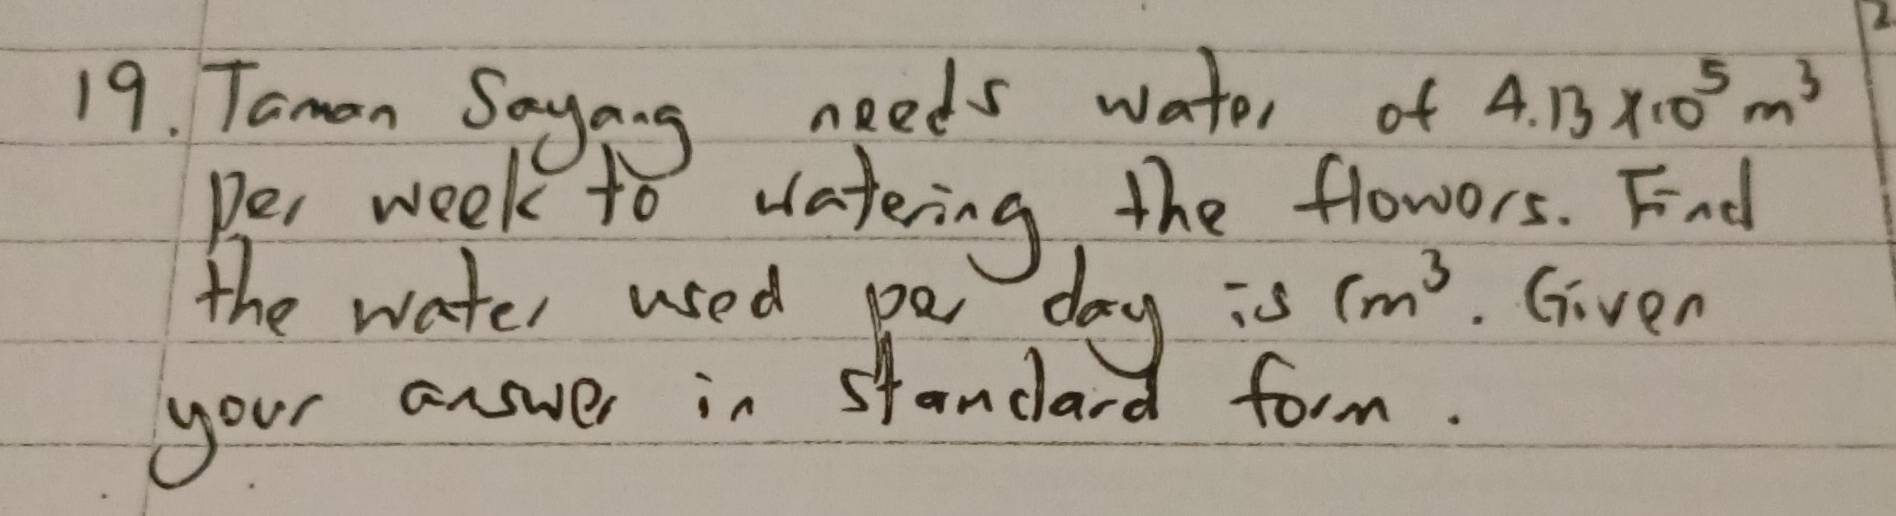 19. Taman Sayang needs water of 4.13 x10⁵ m³
per week to watering the flowers. Find
the water used per day is cm³. Given
your answer in standard form.
2